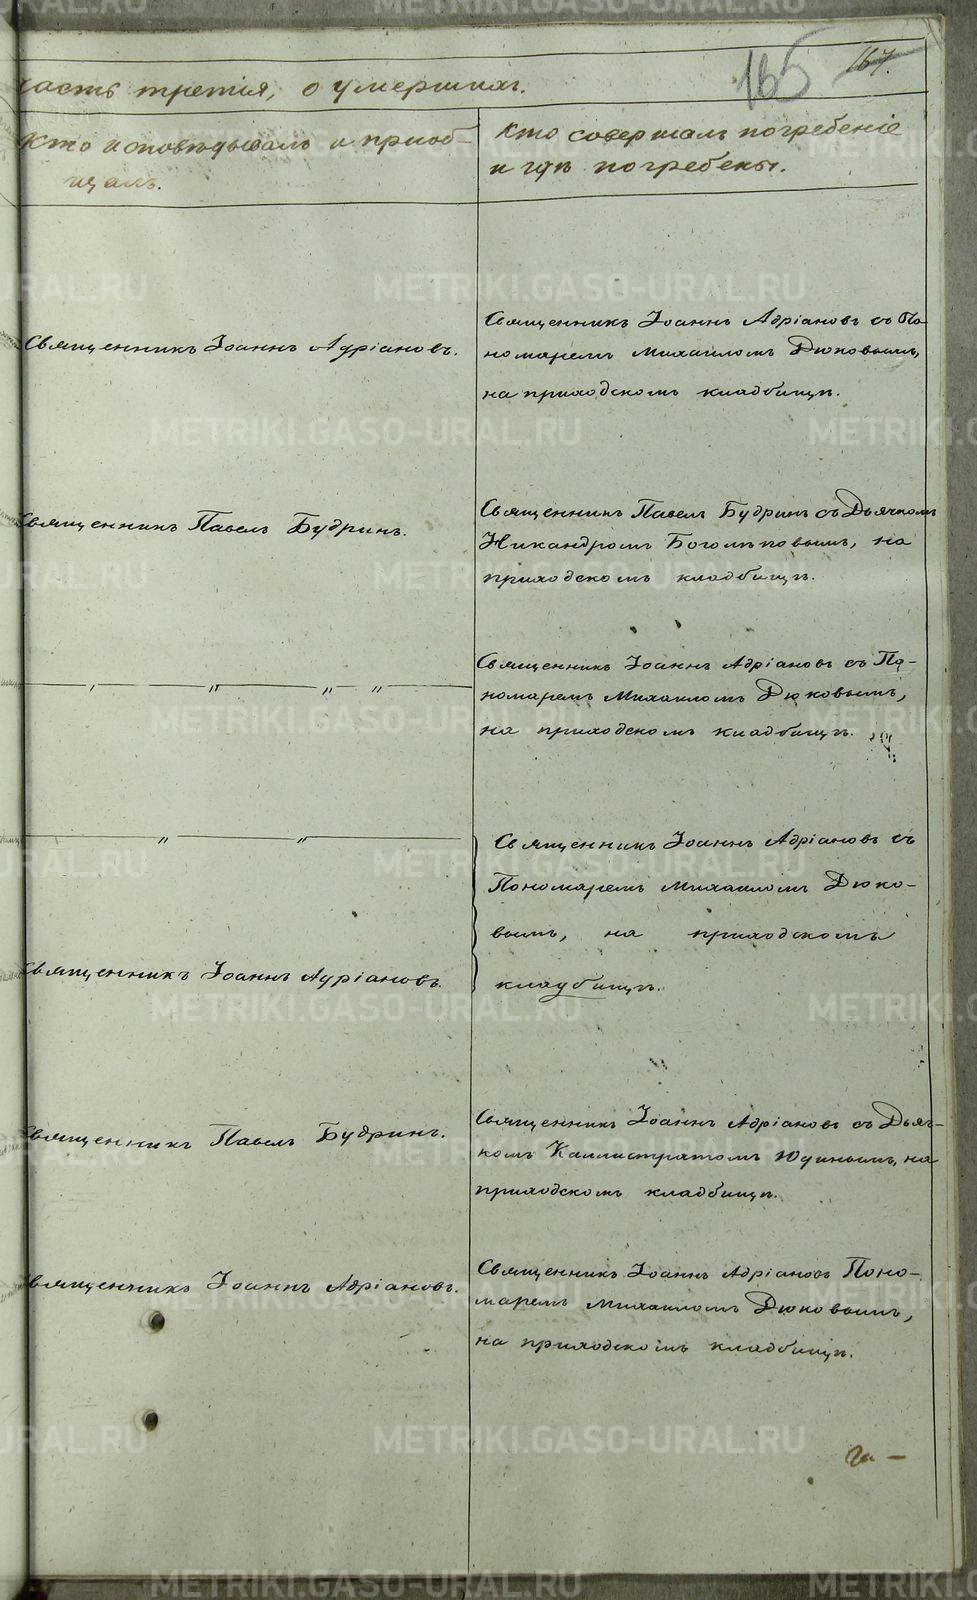 часть третія, о умершихъ.
165
167.
Кто исповѣдывалъ и пріоб-
щалъ.
Кто совершалъ погребеніе
и гдѣ погребены.
Священникъ Іоаннъ Адріановъ.
Священникъ Іоаннъ Адріановъ съ По-
номаремъ Михаиломъ Дюковымъ,
на приходскомъ кладбищѣ.
Священникъ Павелъ Будринъ.
Священникъ Павелъ Будринъ съ Дьячкомъ
Никандромъ Боголѣповымъ, на
приходскомъ кладбищѣ.
— „ — „ — „ — „ —
Священникъ Іоаннъ Адріановъ съ По-
номаремъ Михаиломъ Дюковымъ,
на приходскомъ кладбищѣ.
— „ — „ —
Священникъ Іоаннъ Адріановъ съ
Пономаремъ Михаиломъ Дюко-
вымъ, на приходскомъ
кладбищѣ.
Священникъ Іоаннъ Адріановъ.
Священникъ Павелъ Будринъ.
Священникъ Іоаннъ Адріановъ съ Дьяч-
комъ Каллистратомъ Юдинымъ, на
приходскомъ кладбищѣ.
Священникъ Іоаннъ Адріановъ.
Священникъ Іоаннъ Адріановъ Поно-
маремъ Михаиломъ Дюковымъ,
на приходскомъ кладбищѣ.
METRIKI.GASO-URAL.RU